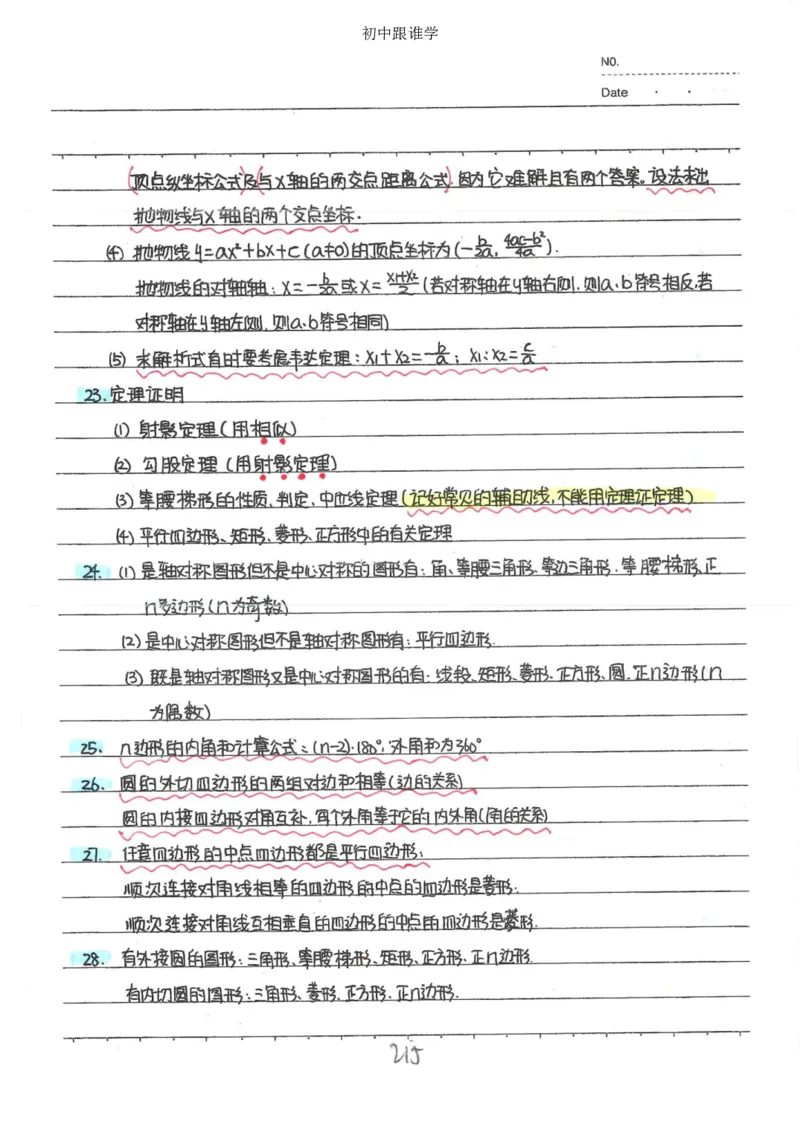 初中跟谁学
NO.
Date
(顶点纵坐标公式)及(与X轴的两交点距离公式).因为它难解且有两个答案。设法求出
抛物线与X轴的两个交点坐标.
(4) 抛物线y=ax²+bx+c(a≠0)的顶点坐标为(-b/2a, 4ac-b²/4a).
抛物线的对轴轴:X=-b/2a或X=X₁+X₂/2(若对称轴在y轴右则,则a、b符号相反,若
对称轴在y轴左则,则a、b符号相同)
(5) 求解析式有时要考虑韦达定理:X₁+X₂=-b/a; X₁:X₂=c/a
23.定理证明
(1) 射影定理(用相似)
(2) 勾股定理(用射影定理)
(3)等腰梯形的性质、判定、中位线定理(记好常见的辅助线,不能用定理证定理)
(4)平行四边形、矩形、菱形、正方形中的有关定理
24. (1)是轴对称图形但不是中心对称的图形有:角、等腰三角形、等边三角形、等腰梯形、正
n多边形(n为奇数)
(2)是中心对称图形但不是轴对称图形有:平行四边形.
(3)既是轴对称图形又是中心对称图形的有:线段、矩形、菱形、正方形、圆、正n边形(n
为偶数)
25. n边形的内角和计算公式:(n-2)·180°,外角和为360°
26. 圆的外切四边形的两组对边和相等(边的关系)
圆的内接四边形对角互补,每个外角等于它的内外角(角的关系)
27. 任意四边形的中点四边形都是平行四边形;
顺次连接对角线相等的四边形的中点的四边形是菱形.
顺次连接对角线互相垂直的四边形的中点的四边形是菱形.
28. 有外接圆的图形:三角形、等腰梯形、矩形、正方形、正n边形.
有内切圆的图形:三角形、菱形、正方形、正n边形.
215